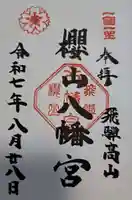 一国一里
奉拝
飛騨高山
櫻山八幡宮
令和七年八月廿八日